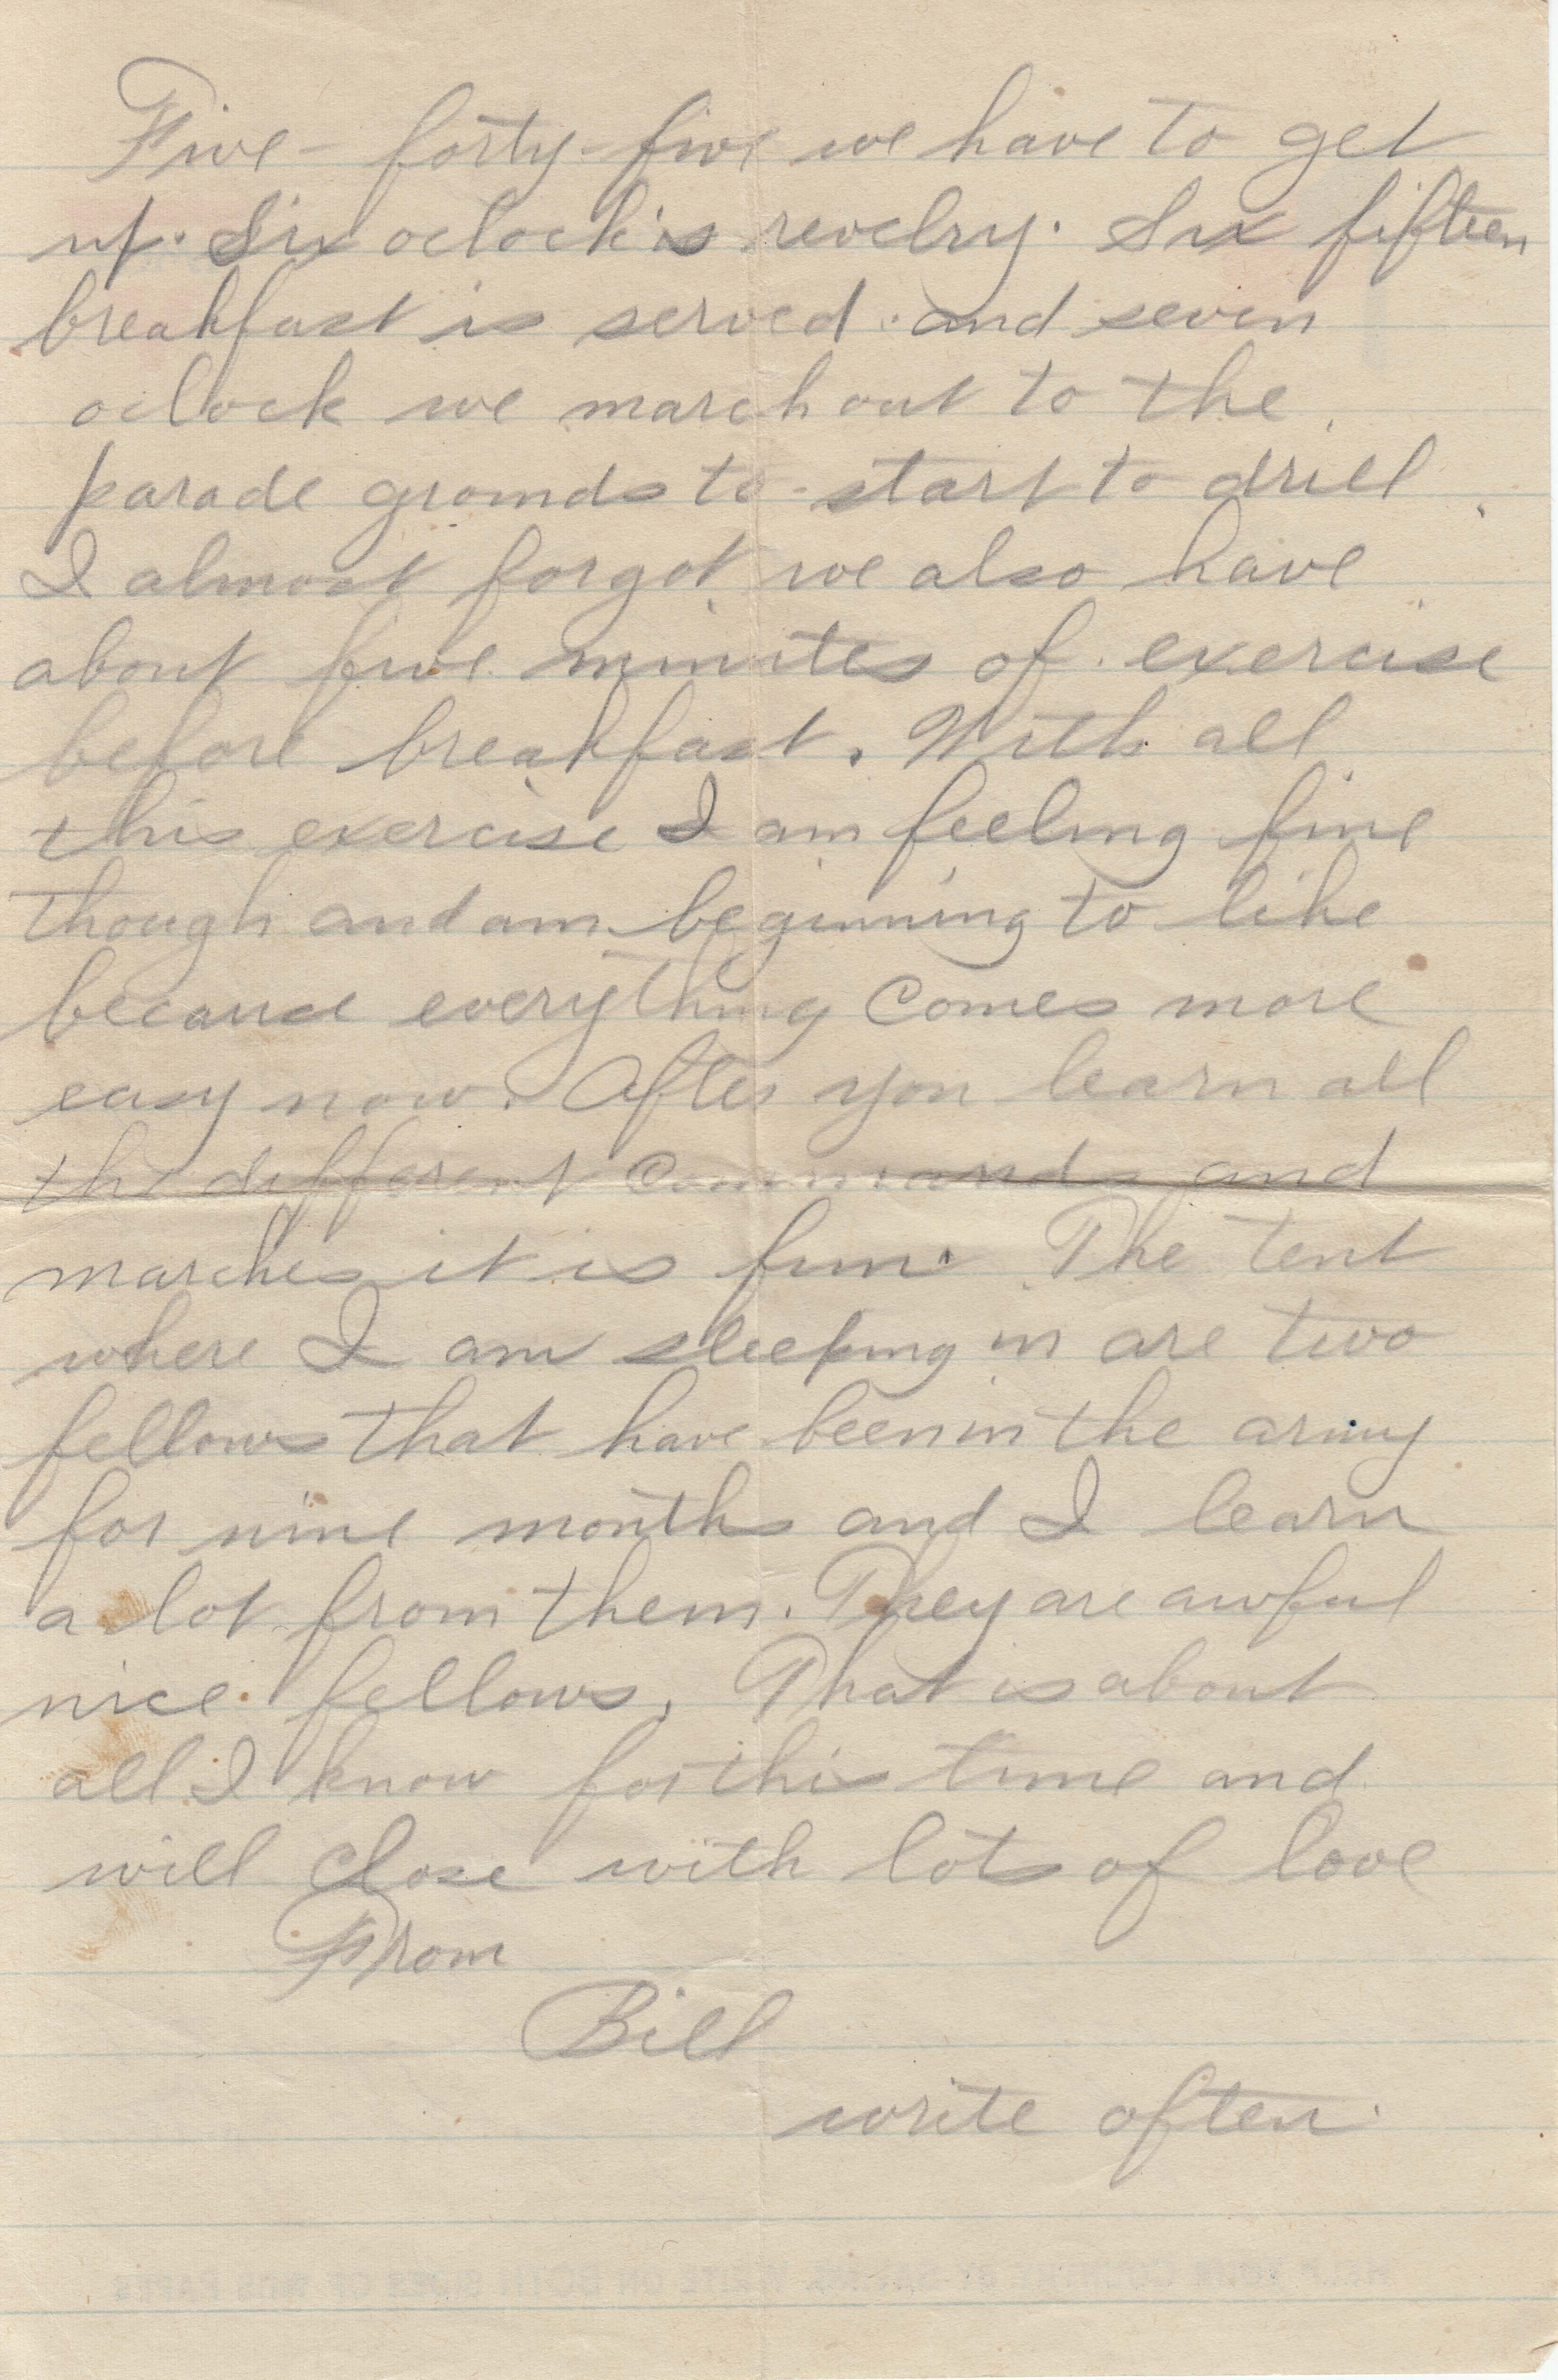 Five-forty-five we have to get
up. Six oclock is revelry. Six fifteen
breakfast is served and seven
oclock we march out to the
parade grounds to start to drill
I almost forgot we also have
about five minutes of exercise
before breakfast. With all
this exercise I am feeling fine
though and am beginning to like
because everything comes more
easy now. After you learn all
the different commands and
marches it is fun. The tent
where I am sleeping in are two
fellows that have been in the army
for nine months and I learn
a lot from them. They are awful
nice fellows. That is about
all I know for this time and
will close with lots of love
From
Bill
write often.